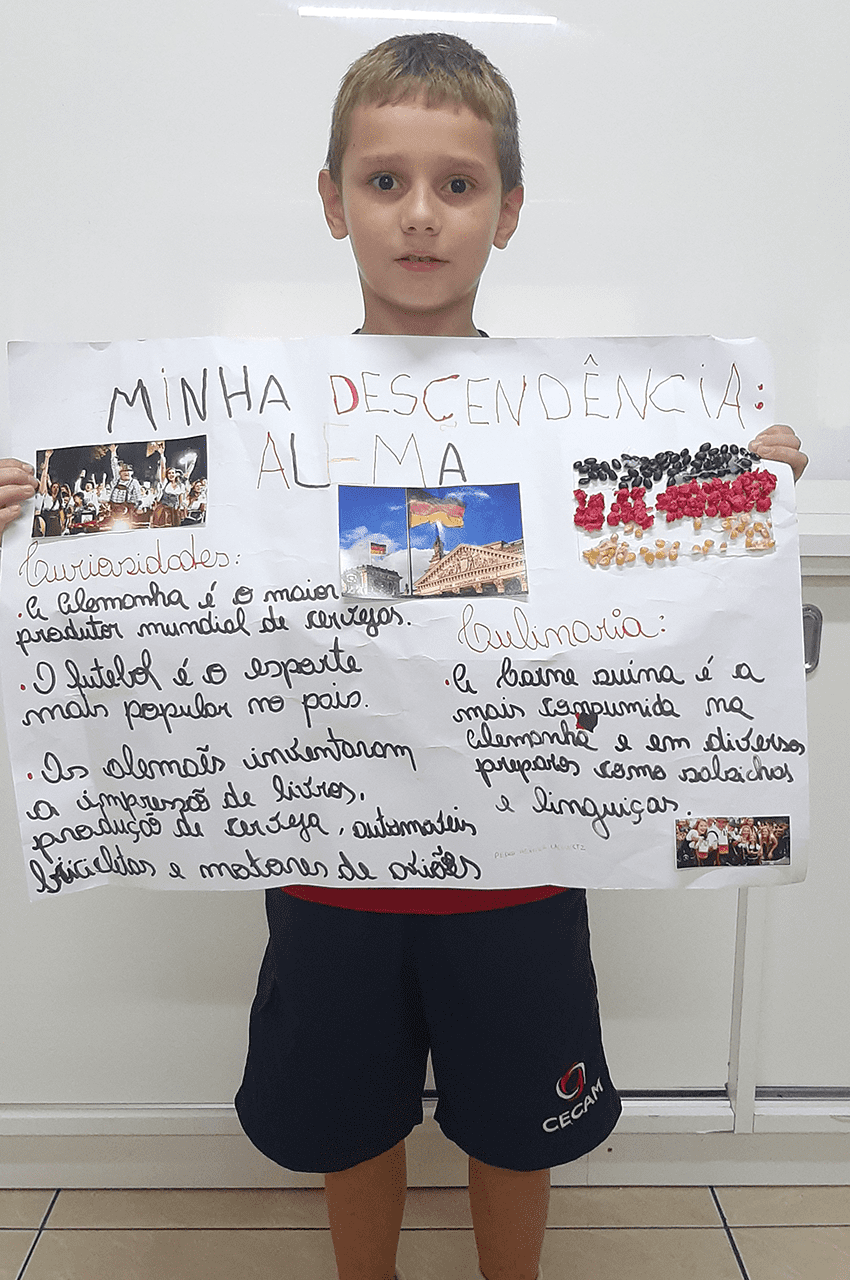 MINHA DESCENDÊNCIA:
ALEMÃ
Curiosidades:
. A Alemanha é o maior
produtor mundial de cervejas.
. O futebol é o esporte
mais popular no pais.
. Os alemaẽs inventaram
a impressão de livros,
produção de cerveja, automavéis
bicicletas e motores de aviões
Culinaria:
. A Carne suina é a
mais compumida na
Alemanha e em diversos
preparos como salsichas
e linguiças.
CECAM